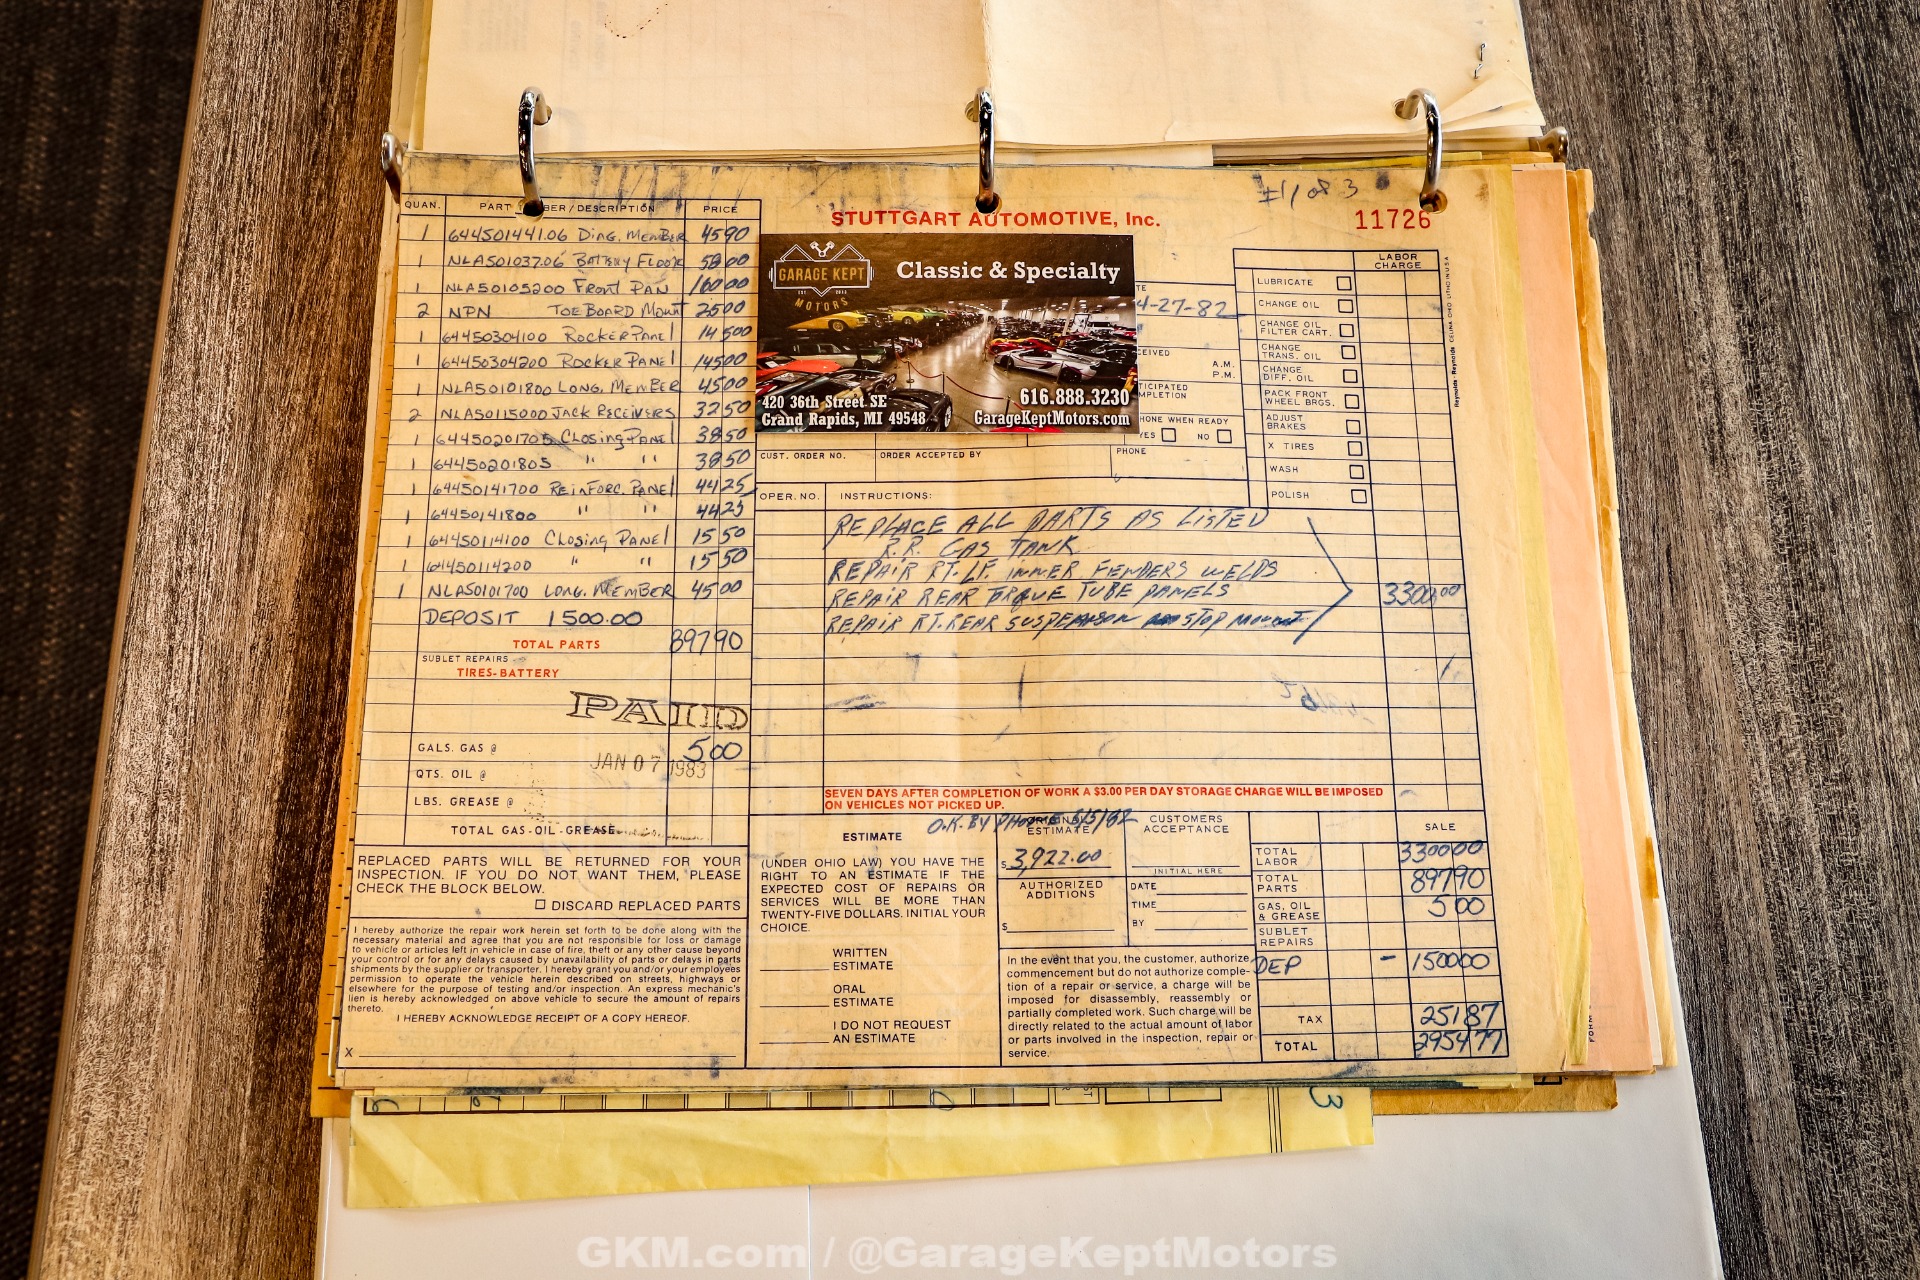 #1 of 3
STUTTGART AUTOMOTIVE, Inc.
11726
QUAN. PART BER/DESCRIPTION PRICE
1 644501441.06 Diag. Member 45 90
1 NLA501037.06 Battery Floor
1 NLA50105200 Front Pan 160 00
2 NPN Toe Board Mount 25 00
1 64450304100 Rocker Panel 145 00
1 64450304200 Rocker Panel 145 00
1 NLA50101800 Long. Member 45 00
2 NLA50115000 Jack Receivers 32 50
1 64450201705 Closing Panel 38 50
1 64450201805 " " 38 50
1 64450141700 Reinforc. Panel 44 25
1 64450141800 " " 44 25
1 64450114100 Closing Panel 15 50
1 64450114200 " " 15 50
1 NLA50101700 Long. Member 45 00
DEPOSIT 1500.00
TOTAL PARTS 897 90
SUBLET REPAIRS
TIRES-BATTERY
PAID
JAN 07 1983
GALS. GAS @ 5 00
QTS. OIL @
LBS. GREASE @
TOTAL GAS-OIL-GREASE
GARAGE KEPT
EST. 2013
MOTORS
Classic & Specialty
420 36th Street SE
Grand Rapids, MI 49548
616.888.3230
GarageKeptMotors.com
TE
4-27-82
CEIVED
A.M.
P.M.
TICIPATED
MPLETION
HONE WHEN READY
YES NO
CUST. ORDER NO. ORDER ACCEPTED BY PHONE
LABOR
CHARGE
LUBRICATE
CHANGE OIL
CHANGE OIL
FILTER CART.
CHANGE
TRANS. OIL
CHANGE
DIFF. OIL
PACK FRONT
WHEEL BRGS.
ADJUST
BRAKES
X TIRES
WASH
POLISH
Reynolds + Reynolds CELINA OHIO LITHO IN USA
OPER. NO. INSTRUCTIONS:
REPLACE ALL PARTS AS LISTED
R.R. GAS TANK
REPAIR RT. LF. INNER FENDERS WELDS
REPAIR REAR TORQUE TUBE PANELS
REPAIR RT. REAR SUSPENSION STOP MOUNT
3300.00
SEVEN DAYS AFTER COMPLETION OF WORK A $3.00 PER DAY STORAGE CHARGE WILL BE IMPOSED
ON VEHICLES NOT PICKED UP.
REPLACED PARTS WILL BE RETURNED FOR YOUR
INSPECTION. IF YOU DO NOT WANT THEM, PLEASE
CHECK THE BLOCK BELOW.
DISCARD REPLACED PARTS
I hereby authorize the repair work herein set forth to be done along with the
necessary material and agree that you are not responsible for loss or damage
to vehicle or articles left in vehicle in case of fire, theft or any other cause beyond
your control or for any delays caused by unavailability of parts or delays in parts
shipments by the supplier or transporter. I hereby grant you and/or your employees
permission to operate the vehicle herein described on streets, highways or
elsewhere for the purpose of testing and/or inspection. An express mechanic's
lien is hereby acknowledged on above vehicle to secure the amount of repairs
thereto.
I HEREBY ACKNOWLEDGE RECEIPT OF A COPY HEREOF.
X
ESTIMATE
O.K. BY PHONE
(UNDER OHIO LAW) YOU HAVE THE
RIGHT TO AN ESTIMATE IF THE
EXPECTED COST OF REPAIRS OR
SERVICES WILL BE MORE THAN
TWENTY-FIVE DOLLARS. INITIAL YOUR
CHOICE.
WRITTEN
ESTIMATE
ORAL
ESTIMATE
I DO NOT REQUEST
AN ESTIMATE
ORIGINAL
ESTIMATE
$ 3,922.00
AUTHORIZED
ADDITIONS
$
CUSTOMERS
ACCEPTANCE
INITIAL HERE
DATE
TIME
BY
In the event that you, the customer, authorize
commencement but do not authorize comple-
tion of a repair or service, a charge will be
imposed for disassembly, reassembly or
partially completed work. Such charge will be
directly related to the actual amount of labor
or parts involved in the inspection, repair or
service.
SALE
TOTAL
LABOR 3300 00
TOTAL
PARTS 897 90
GAS, OIL
& GREASE 5 00
SUBLET
REPAIRS
DEP - 1500 00
TAX 251 87
TOTAL 2954 77
FORM
GKM.com / @GarageKeptMotors